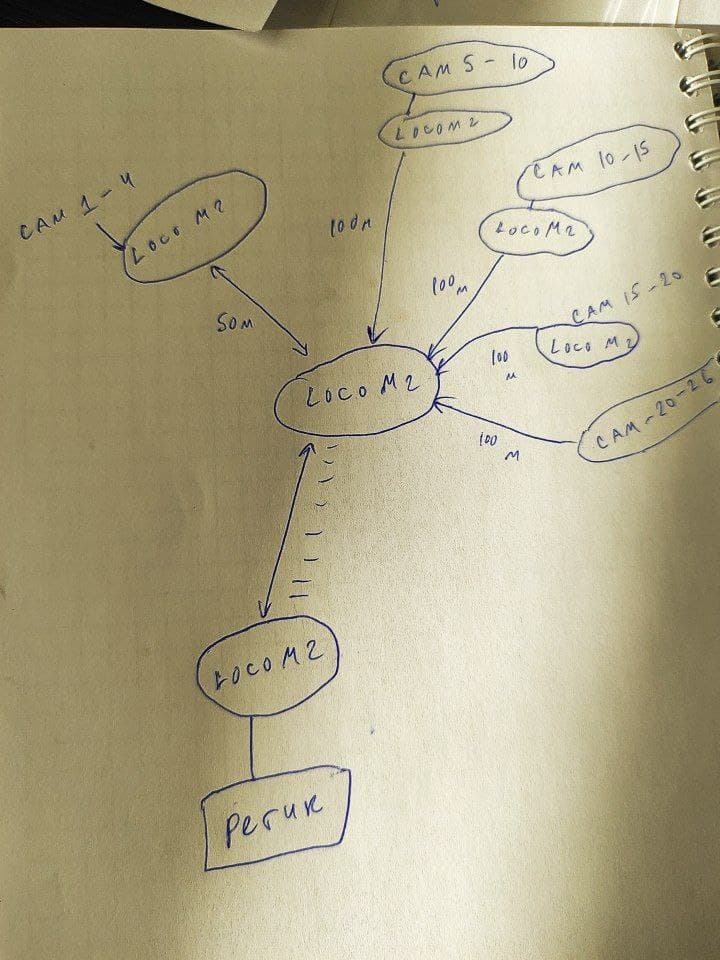 CAM 5-10
LOCO M2
CAM 10-15
LOCO M2
CAM 1-4
LOCO M2
100м
100м
50м
CAM 15-20
LOCO M2
100
м
LOCO M2
CAM-20-26
100
м
LOCO M2
Регик